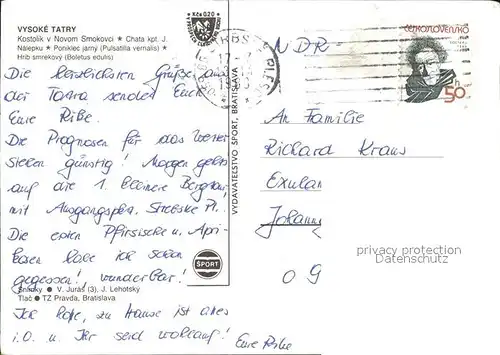 VYSOKÉ TATRY
Kostolík v Novom Smokovci • Chata kpt. J.
Nálepku • Poniklec jarný (Pulsatilla vernalis) •
Hríb smrekový (Boletus edulis)
Die herzlichsten Grüße aus
der Tatra sendet Euch
Eure Rike.
Die Prognosen für das Wetter
stehen günstig! Morgen geht's
auf die 1. kleinere Bergtour,
mit Ausgangspkt. Strbske Pl.
Die ersten Pfirsiche u. Apri-
kosen habe ich schon
gegessen!, wunderbar!
Snímky • V. Juráš (3), J. Lehotský
Tlač • TZ Pravda, Bratislava
Ich hoffe, zu Hause ist alles
i.O. u. Ihr seid wohlauf! Eure Rike
Kčs 0,20
VYDAVATEĽSTVO ŠPORT, BRATISLAVA
ŠPORT
ČESKOSLOVENSKO
50
NDR
An Familie
Richard Kraus
Exulan
Johann
9
privacy protection
Datenschutz